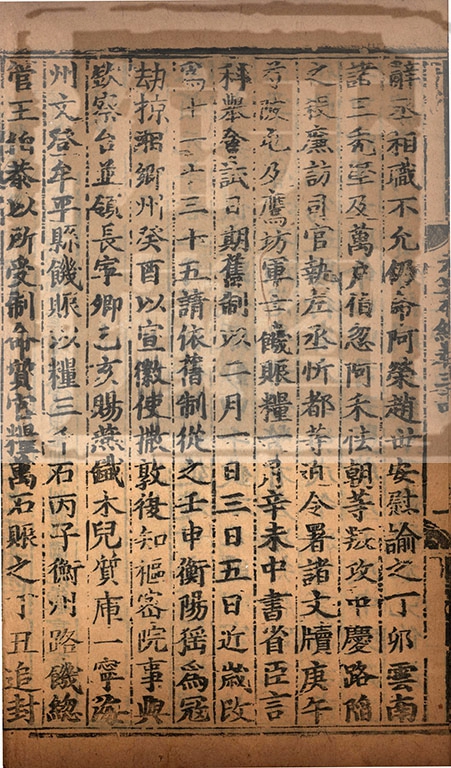 辭丞相職不允仍命阿榮趙世安慰諭之丁卯雲南
諸王禿堅及萬戶伯忽阿禾怯朝等叛攻中慶路陷
之殺廉訪司官執左丞忻都等迫令署諸文牘庚午
芍陂屯及鷹坊軍士饑賑糧一月辛未中書省臣言
科舉會試日期舊制以二月一日三日五日近歲改
為十一十三十五請依舊制從之壬申衡陽猺為寇
劫掠湘鄉州癸酉以宣徽使撒敦復知樞密院事與
欽察台並領長寧卿乙亥賜燕鐵木兒質庫一寧海
州文登牟平縣饑賑以糧三千石丙子衡州路饑總
管王伯恭以所受制命質官糧萬石賑之丁丑追封
元史本紀卷三十四